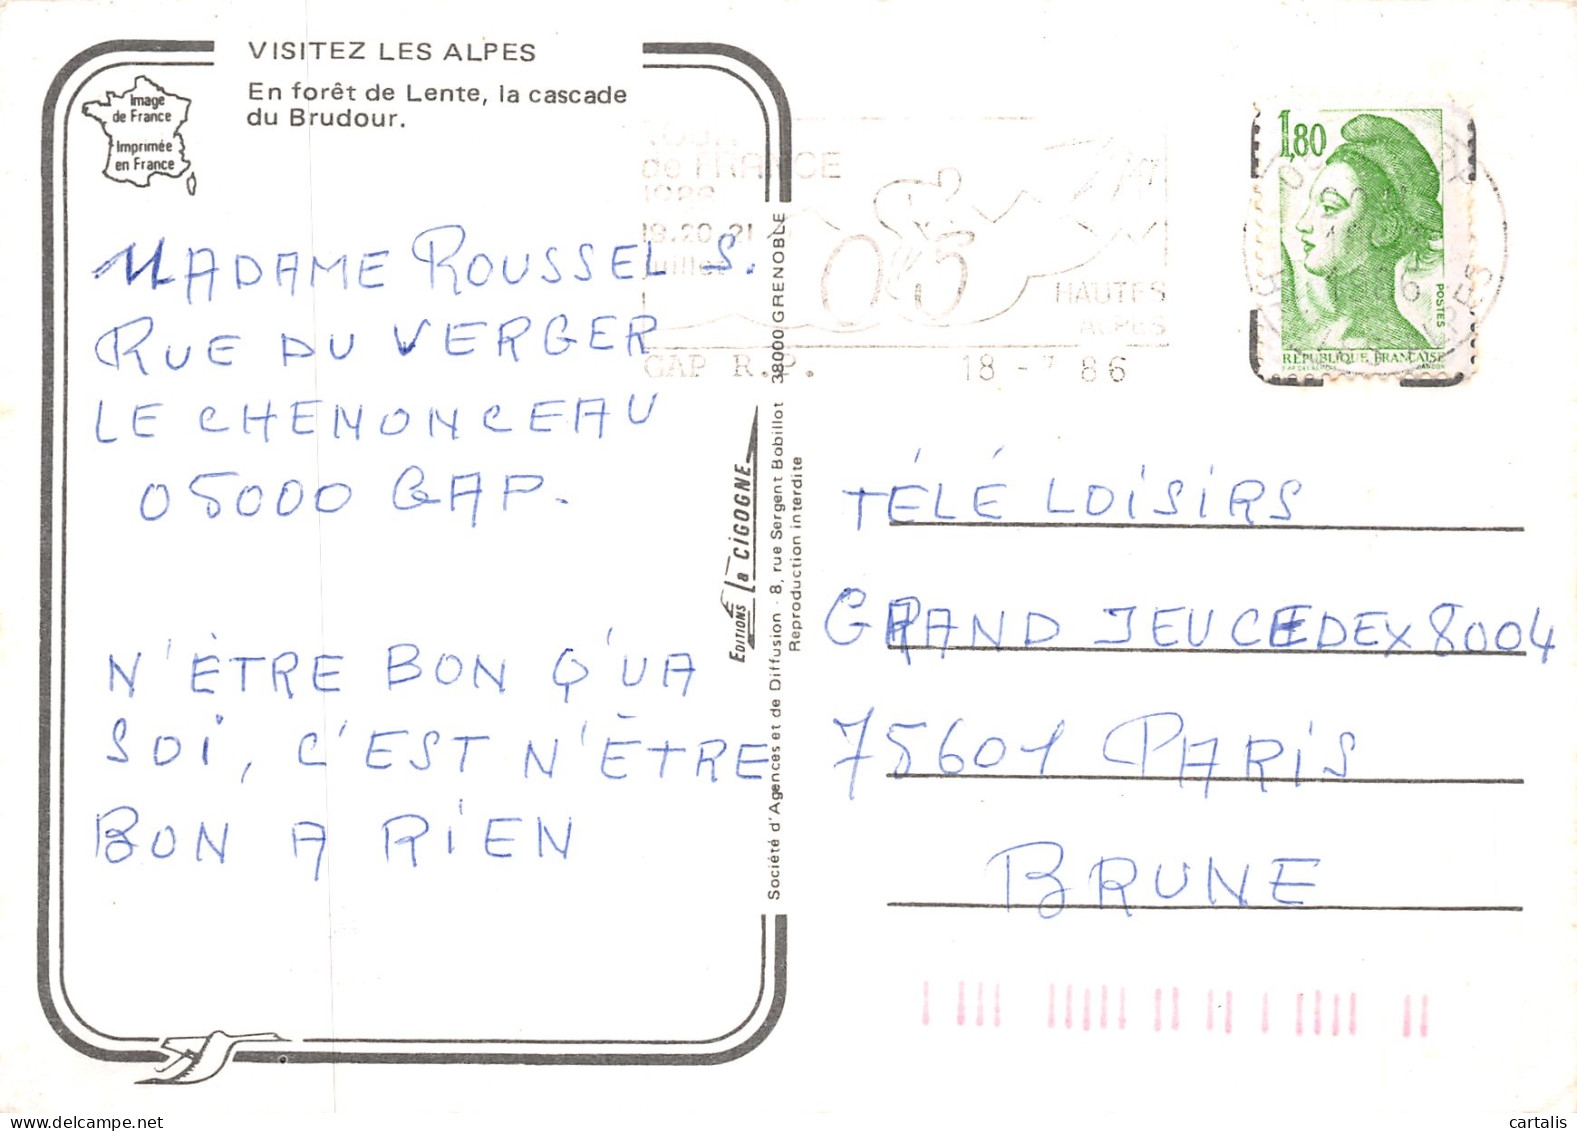 VISITEZ LES ALPES
En forêt de Lente, la cascade
du Brudour.
Image
de France
Imprimée
en France
MADAME ROUSSEL S.
RUE DU VERGER
LE CHENONCEAU
05000 GAP.
N'ÊTRE BON Q'UA
SOI, C'EST N'ÊTRE
BON A RIEN
EDITIONS La CIGOGNE
Société d'Agences et de Diffusion - 8, rue Sergent Bobillot 38000 GRENOBLE
Reproduction interdite
de FRANCE
1986
19.20.21
juillet
HAUTES
ALPES
GAP R.P. 18 -7 86
1,80
POSTES
RÉPUBLIQUE FRANÇAISE
TÉLÉ LOISIRS
GRAND JEU CEDEX 8004
75601 PARIS
BRUNE
cartalis